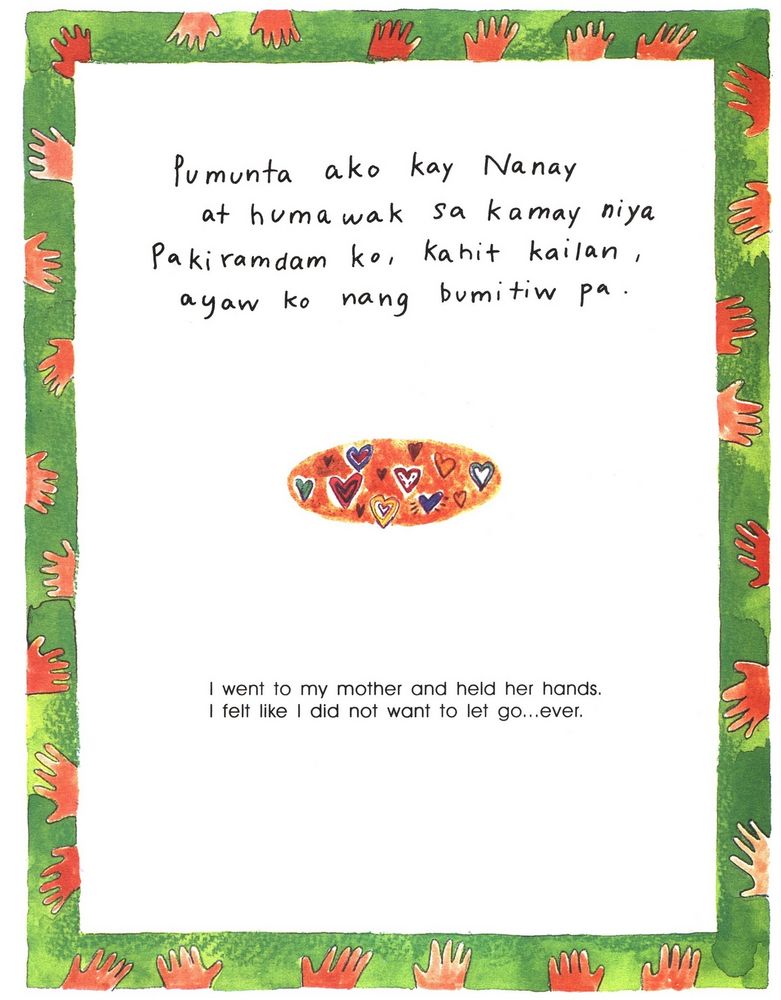 Pumunta ako kay Nanay
at humawak sa kamay niya
Pakiramdam ko, kahit kailan,
ayaw ko nang bumitiw pa.
I went to my mother and held her hands.
I felt like I did not want to let go...ever.